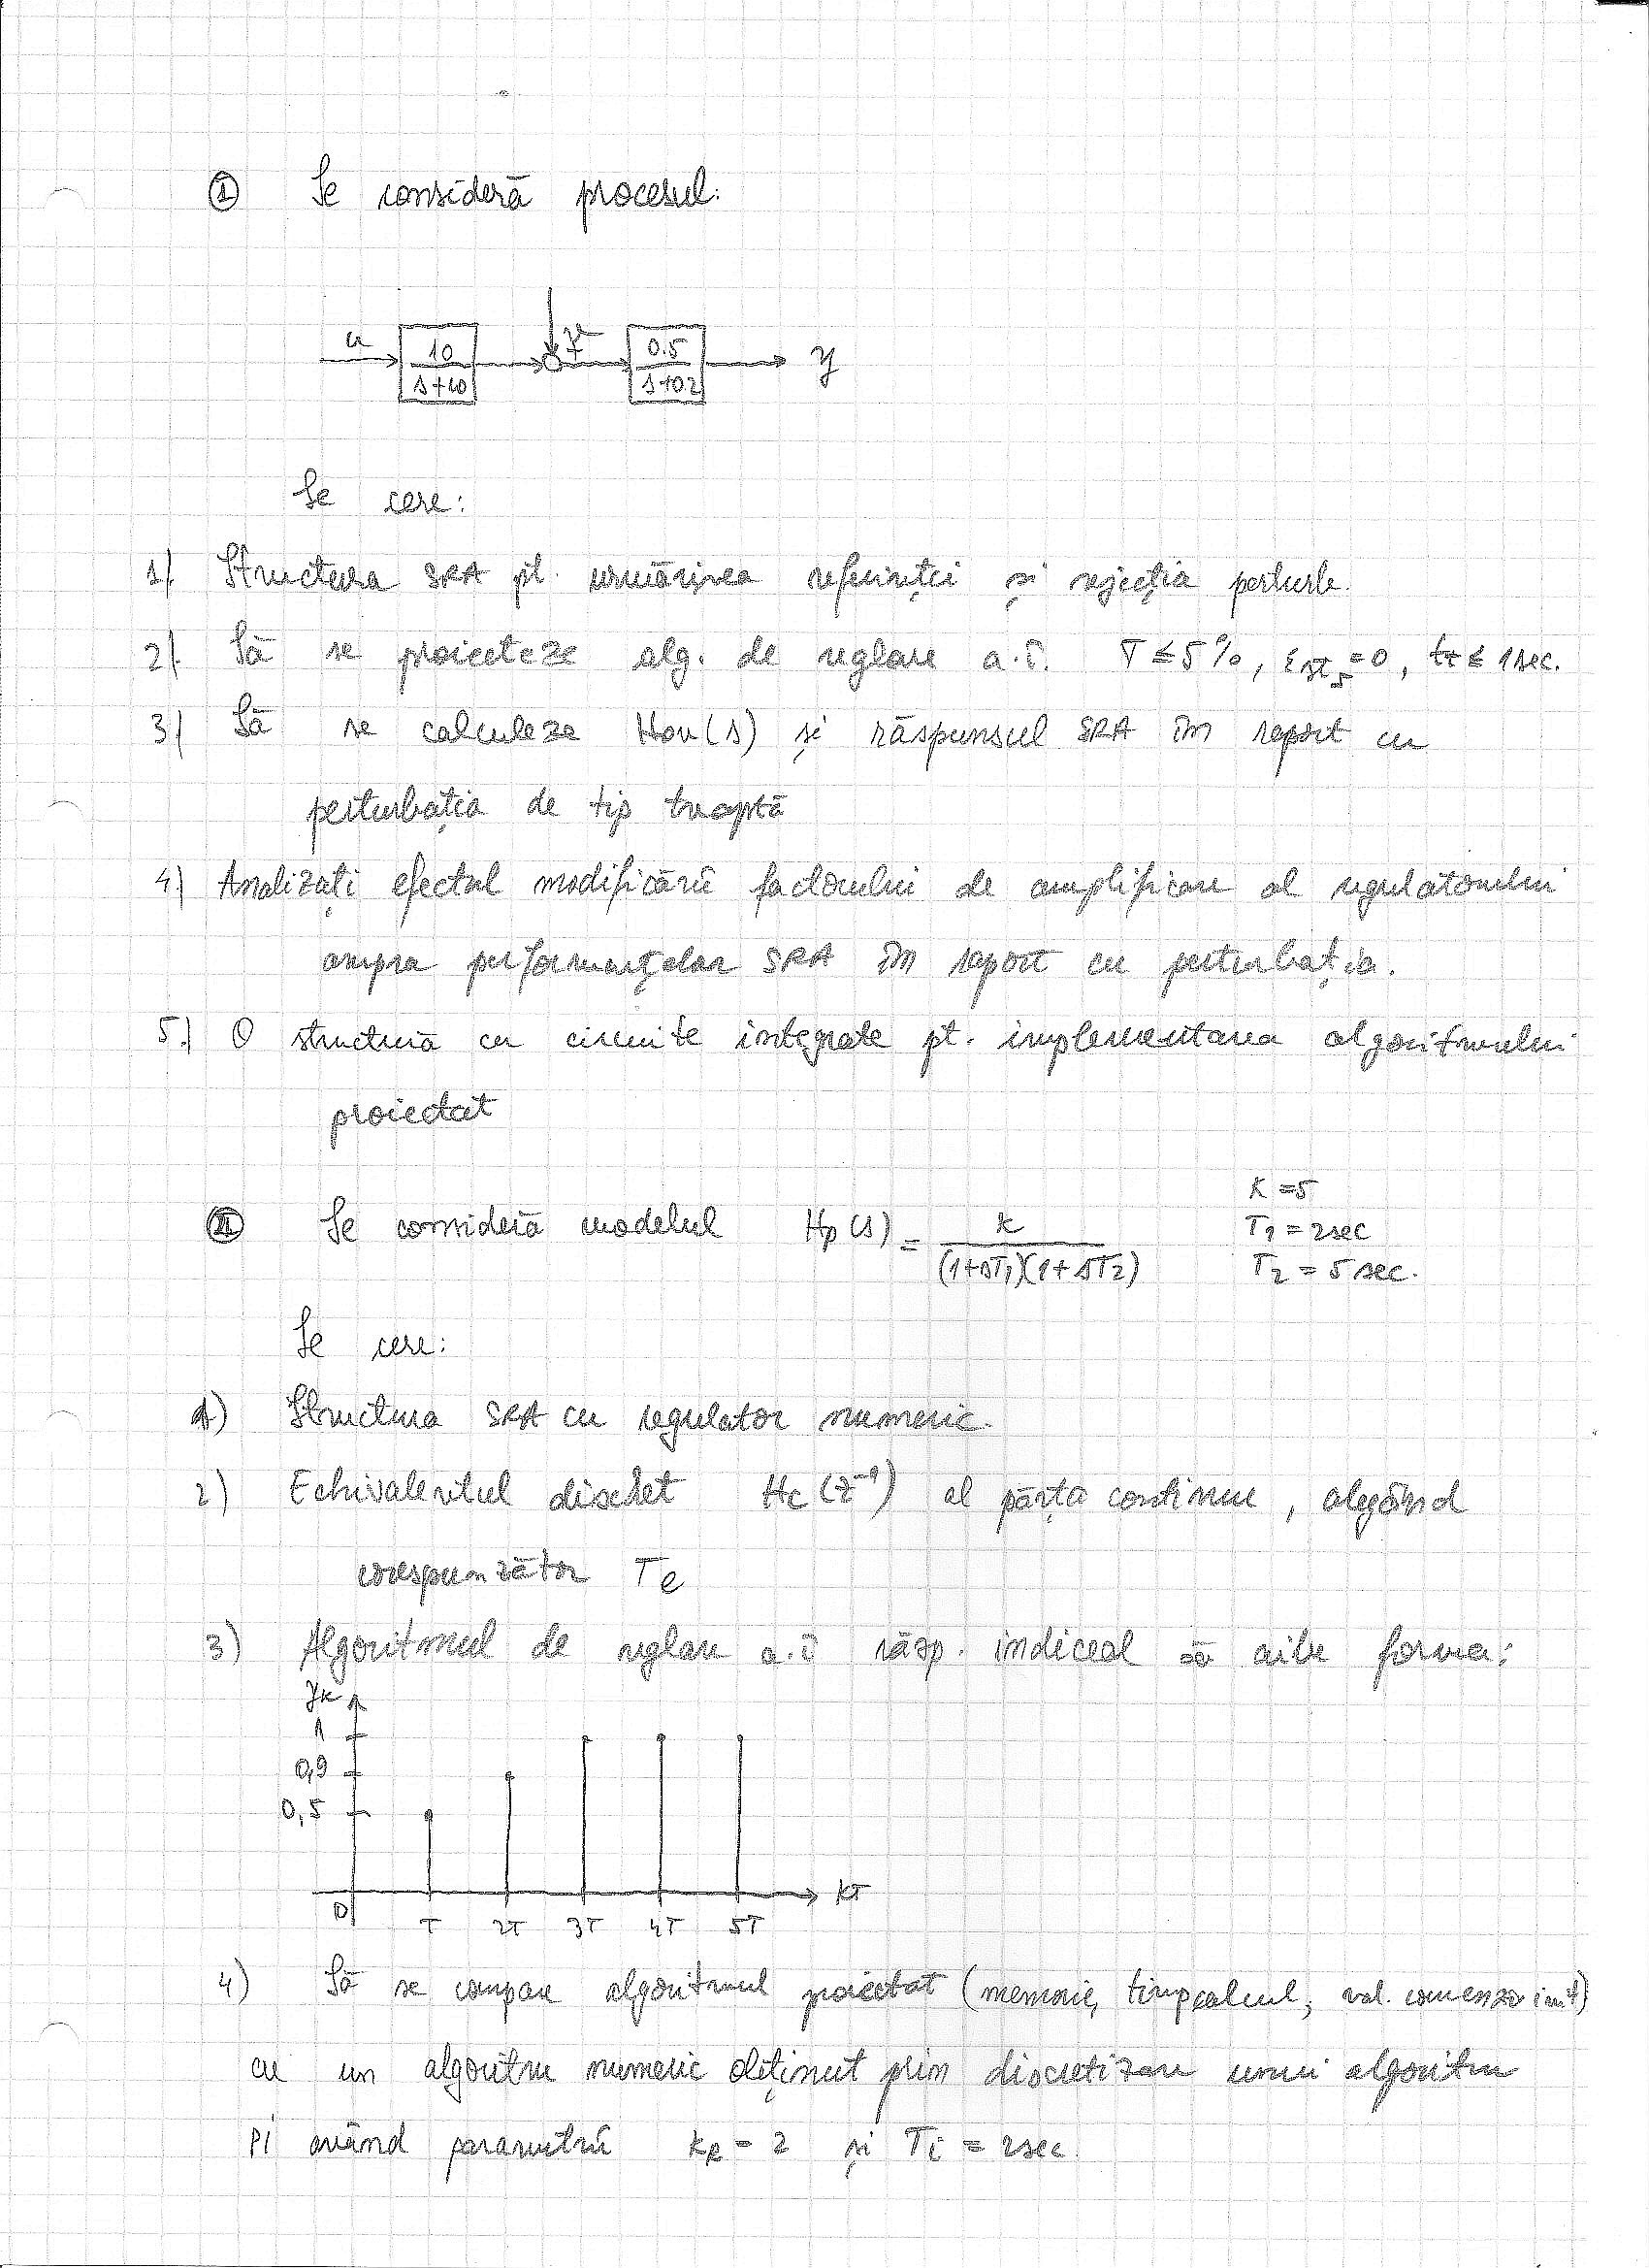 ① Se consideră procesul:
u 10 v 0.5 y
s+10 + s+0.2
Se cere:
1). Structura SRA pt. urmărirea referinței și rejecția perturb.
2). Să se proiecteze alg. de reglare a.î. σ ≤ 5%, εst = 0, tt ≤ 1sec.
3) Să se calculeze Hov(s) și răspunsul SRA în raport cu
perturbația de tip treaptă
4.) Analizați efectul modificării factorului de amplificare al regulatorului
asupra performanțelor SRA în raport cu perturbația.
5.) O structură cu circuite integrate pt. implementarea algoritmului
proiectat
Ⅱ Se consideră modelul Hp(s) = K / (1+sT1)(1+sT2) K = 5
T1 = 2sec
T2 = 5 sec.
Se cere:
1) Structura SRA cu regulator numeric.
2) Echivalentul discret Hc(z⁻¹) al părții continue, alegând
corespunzător Te
3) Algoritmul de reglare a.î răsp. indiceal să aibe forma:
yk
1
0,9
0,5
0 T 2T 3T 4T 5T kT
4) Să se compare algoritmul proiectat (memorie, timp calcul, val. comenzii init)
cu un algoritm numeric obținut prin discretizare unui algoritm
PI având parametrii kR = 2 și Ti = 2sec.